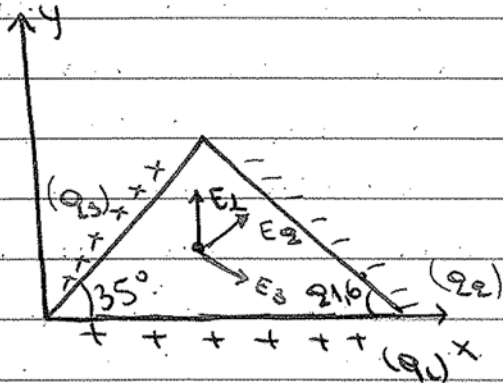 y
(q3)
E1
E2
E3
35°
21,6
(q2)
(q1)
x